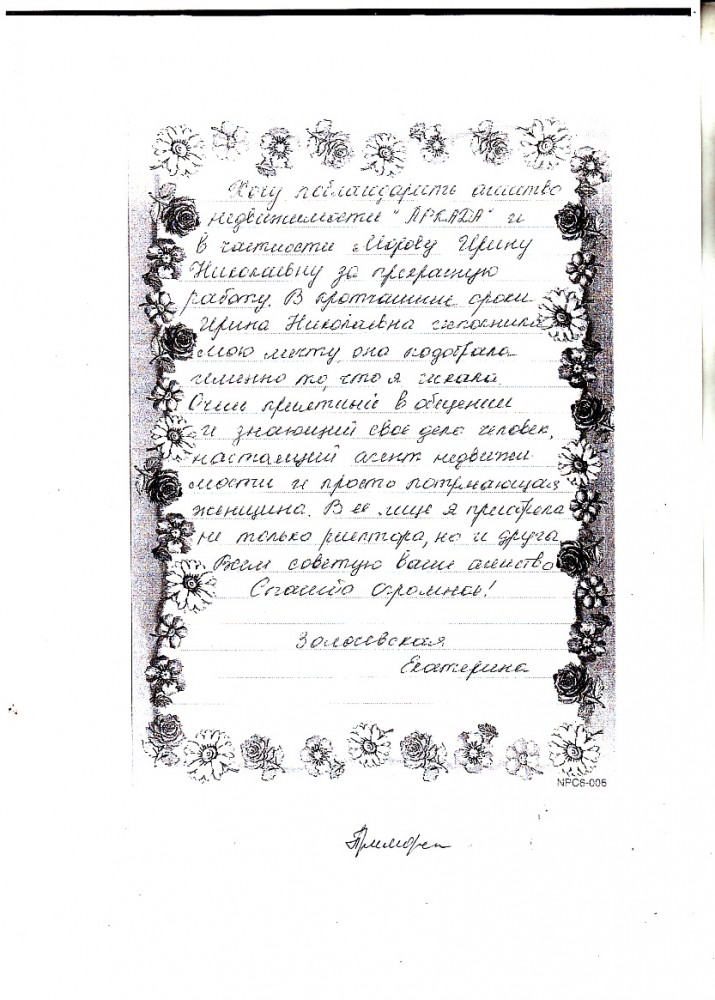 Хочу поблагодарить агенство
недвижимости "АРКАДА" и
в частности Ирину
Николаевну за прекрасную
работу. В кротчайшие сроки
Ирина Николаевна исполнила
мою мечту, она подобрала
именно то, что я искала.
Очень приятный в общении
и знающий своё дело человек,
настоящий агент недвижи
мости и просто потрясающая
женщина. В её лице я приобрела
не только риэлтора, но и друга
Всем советую ваше агенство
Спасибо огромное!
Екатерина
NPC6-006